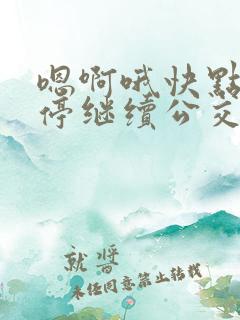 嗯啊哦快點
停继續公交
就將
未经同意禁止转载